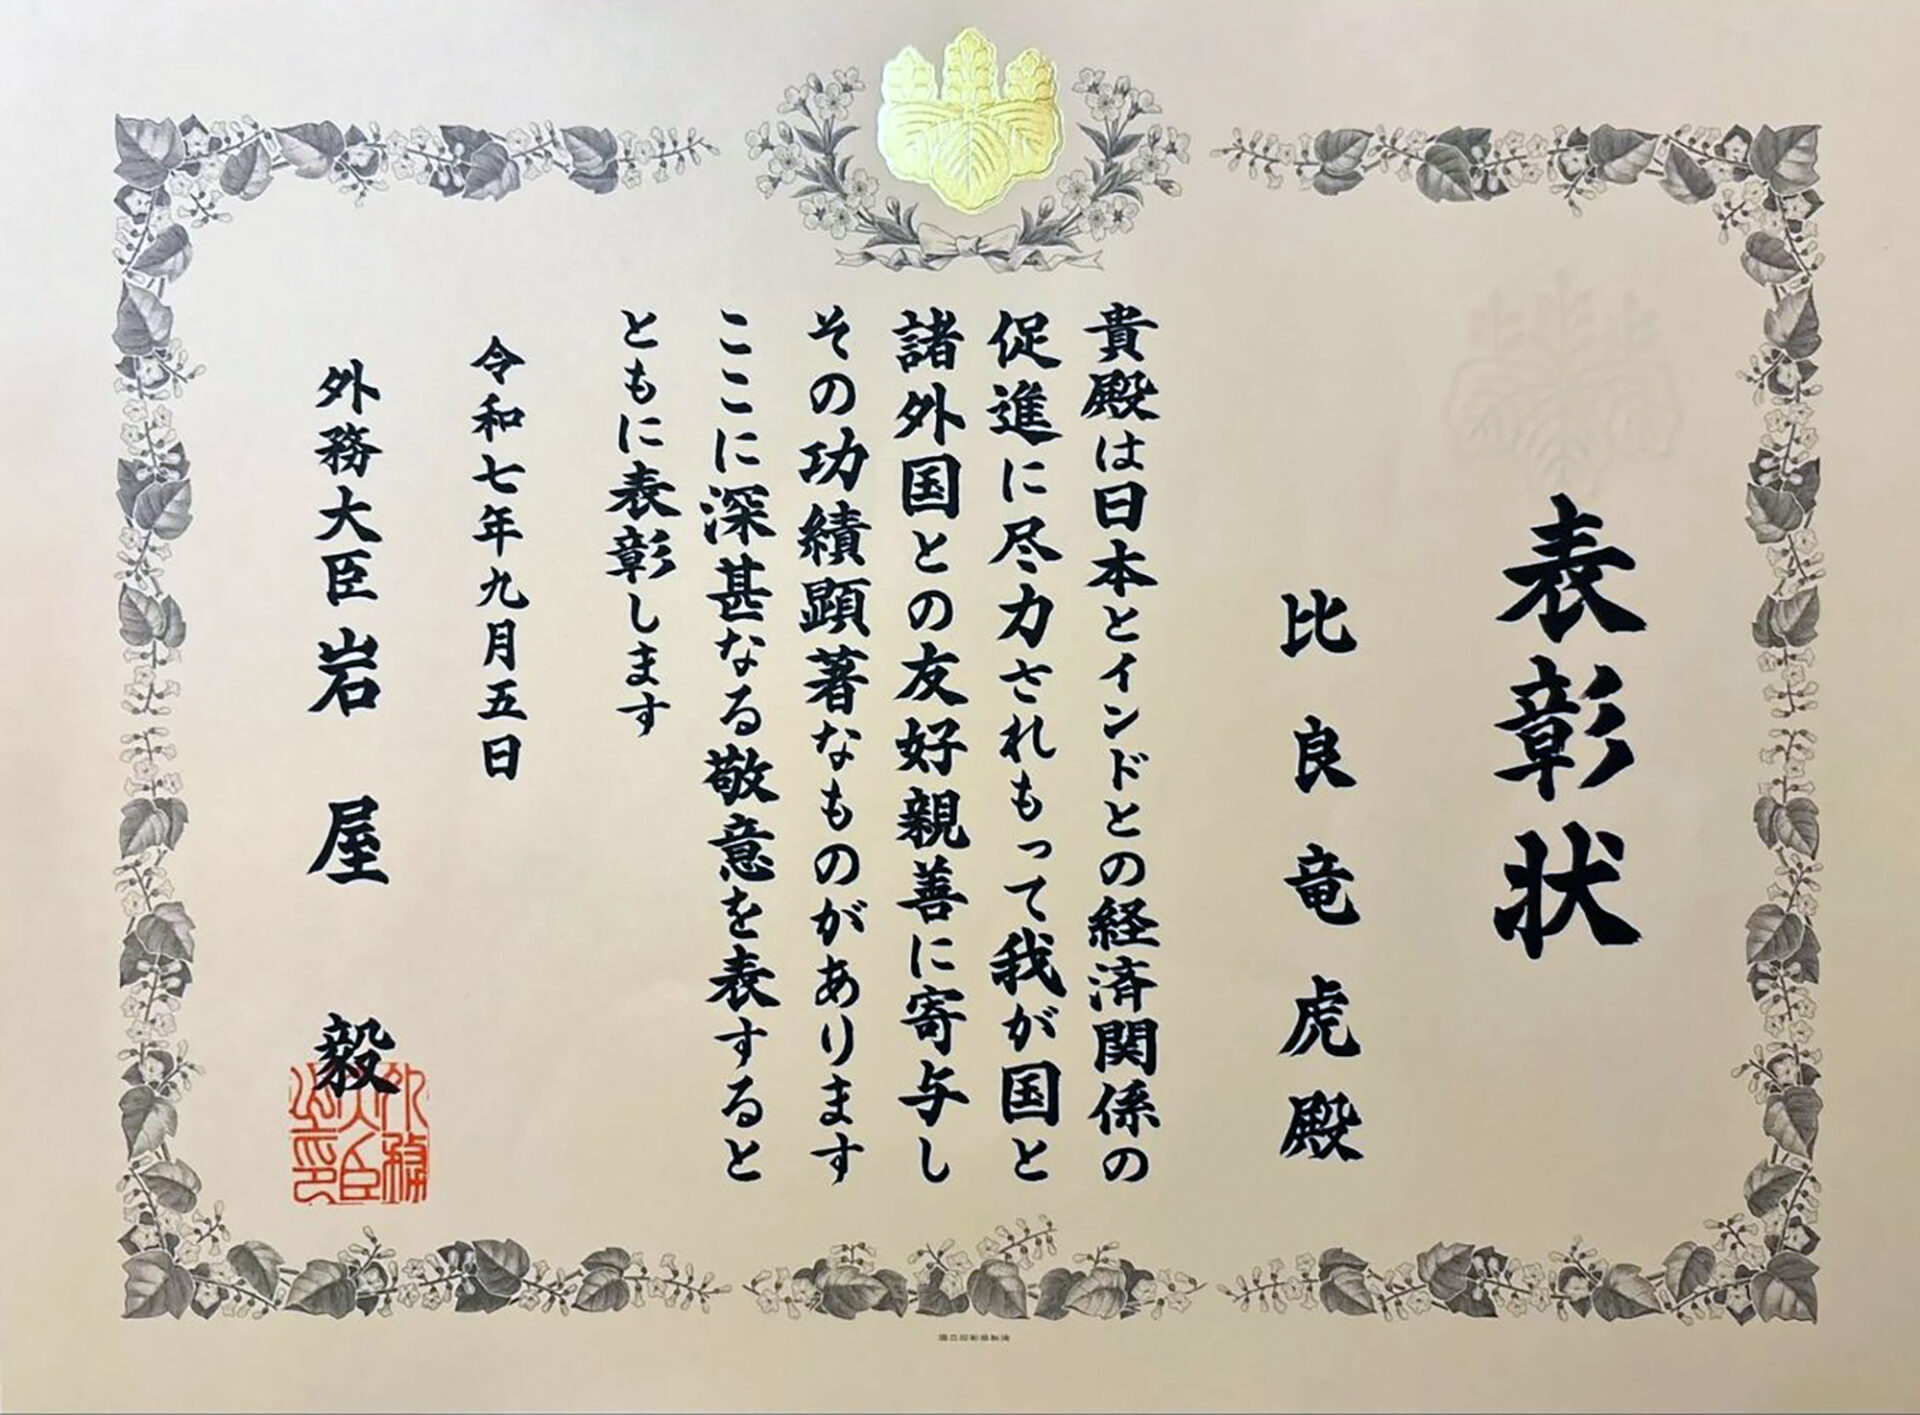 表彰状
比良竜虎殿
貴殿は日本とインドとの経済関係の
促進に尽力されもって我が国と
諸外国との友好親善に寄与し
その功績顕著なものがあります
ここに深甚なる敬意を表すると
ともに表彰します
令和七年九月五日
外務大臣岩屋毅
外務大臣之印